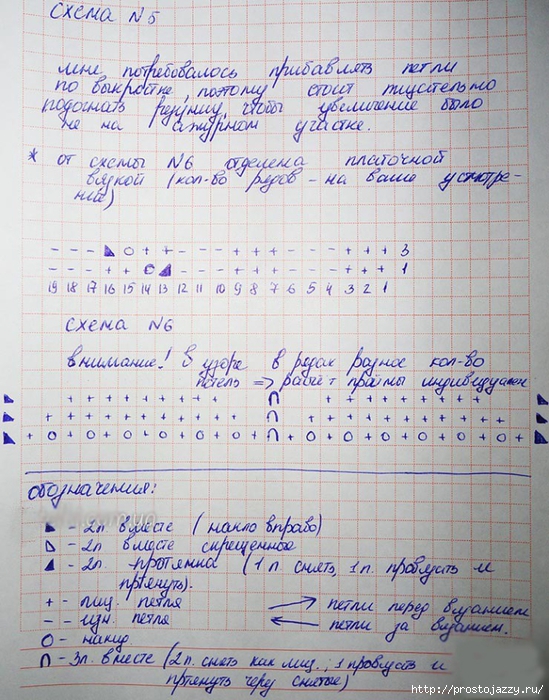 Схема N5
мне потребовалось прибавлять петли
по выкройке, поэтому стоит тщательно
подогнать резинку, чтобы увеличение было
не на ажурном участке.
* от схемы N6 отделена платочной
вязкой (кол-во рядов - на ваше усмотре-
ние)
- - - ◣ O + + - - - + + + - - - + + + 3
- - - + + O ◢ - - - + + + - - - + + + 1
19 18 17 16 15 14 13 12 11 10 9 8 7 6 5 4 3 2 1
Схема N6
внимание! в узоре в рядах разное кол-во
петель => расчёт пряжи индивидуален
◣ + + + + + + + + + ∩ + + + + + + + + + ◣
◣ + + + + + + + + + + ∩ + + + + + + + + + + ◣
◣ + O + O + O + O + O + O + ∩ + O + O + O + O + O + O + ◣
обозначения:
◣ - 2п вместе (накло вправо)
- 2п вместе скрещенное
◢ - 2п. протяжка (1 п. снять, 1 п. провязать и
протянуть).
+ - лиц. петля → петли перед вязанием
- - изн. петля ← петли за вязанием.
O - накид
∩ - 3п. вместе (2п. снять как лиц., 1 провязать и
протянуть через снятые)
http://prostojazzy.ru/